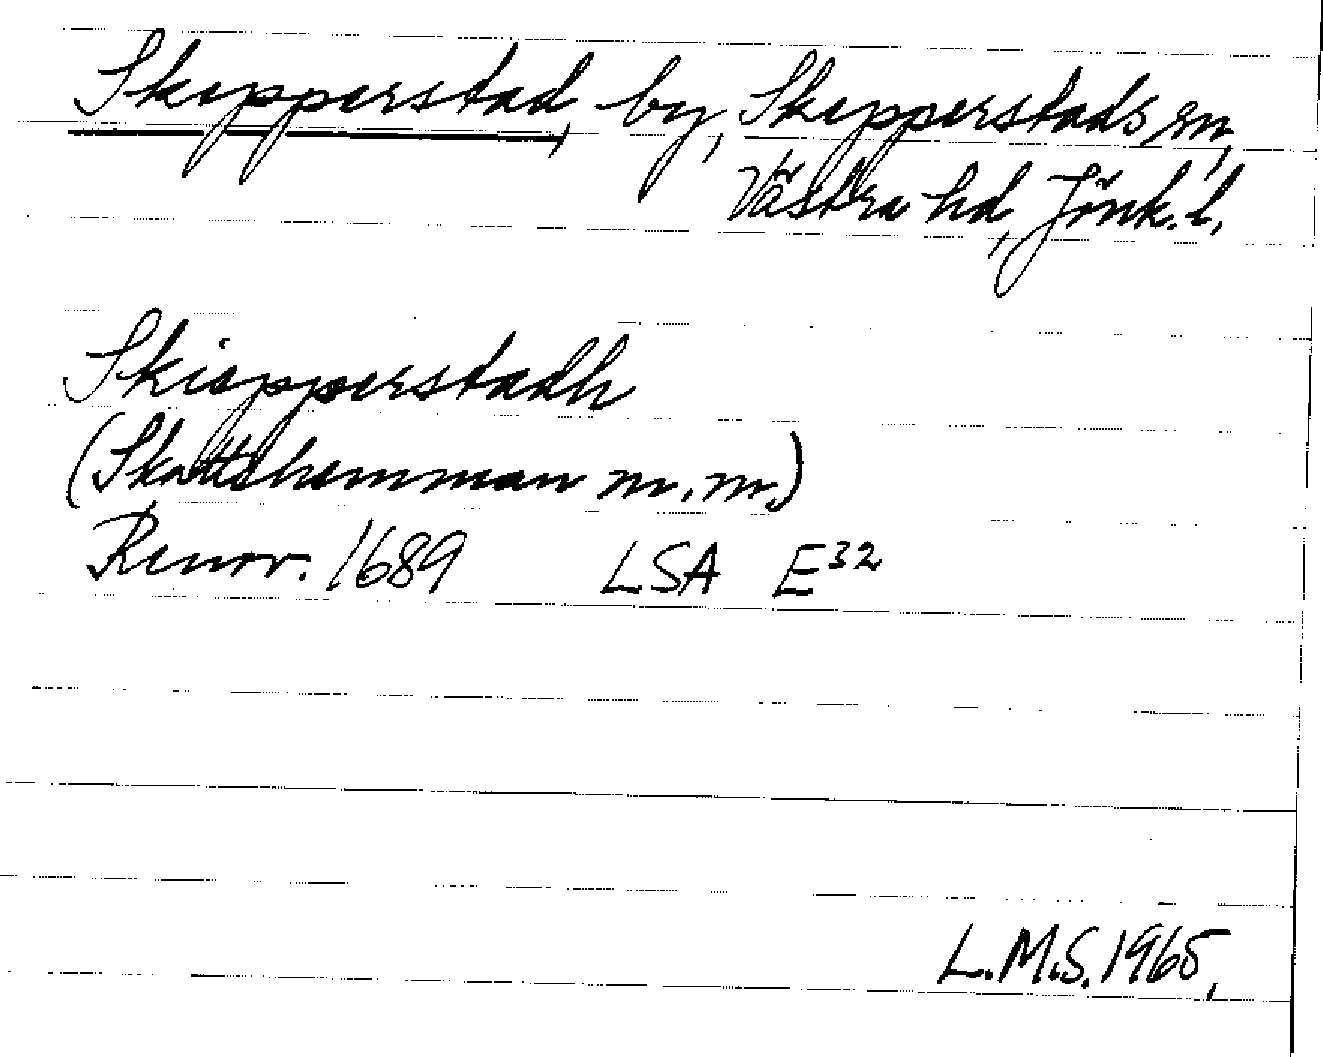 Skepperstad, by, Skepperstads sn,
Västra hd, Jönk. l.
Skiepperstadh
(Skattehemman m.m.)
Renov. 1689 LSA E32
L.M.S. 1965,